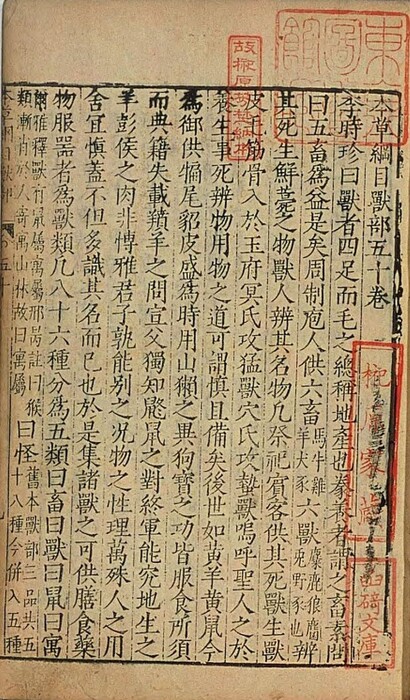 本草綱目獸部五十卷
李時珍曰獸者四足而毛之總稱地產也豢養者謂之畜素問
曰五畜爲益是矣周制庖人供六畜馬牛雞羊犬豕六獸麋鹿狼麕兎野豕也辨
其死生鮮薧之物獸人辨其名物凡祭祀賓客供其死獸生獸
皮毛筋骨入於玉府冥氏攻猛獸穴氏攻蟄獸嗚呼聖人之於
養生事死辨物用物之道可謂慎且備矣後世如黃羊黃鼠今
爲御供犏尾貂皮盛爲時用山獺之異狗寶之功皆服食所須
而典籍失載羵羊之問宣父獨知鼮鼠之對終軍能究地生之
羊彭侯之肉非博雅君子孰能別之况物之性理萬殊人之用
舍宜慎蓋不但多識其名而已也於是集諸獸之可供膳食藥
物服器者爲獸類凡八十六種分爲五類曰畜曰獸曰鼠曰寓
爾雅釋獸有鼠屬寓屬邢昺註曰猴類漸肖於人寓寓山林故曰寓屬曰怪舊本獸部三品共五十八種今併入五種
故榊原芳埜納本
家藏
文庫